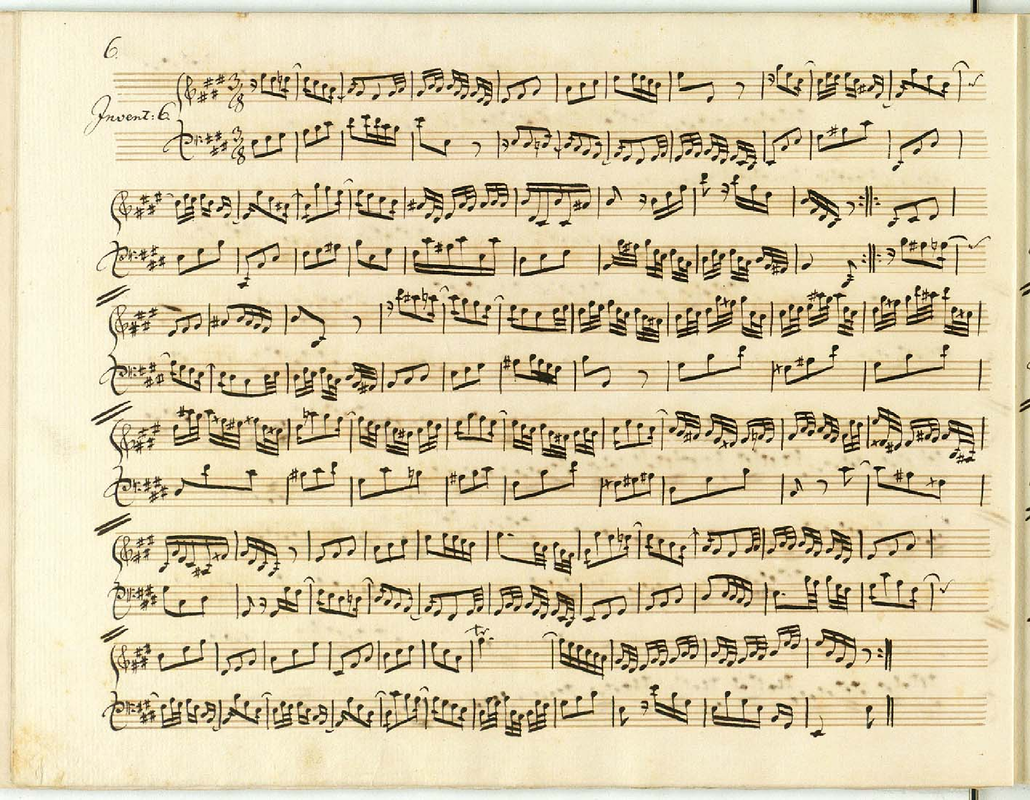 6.
Invent: 6.
3
8
3
8
tr